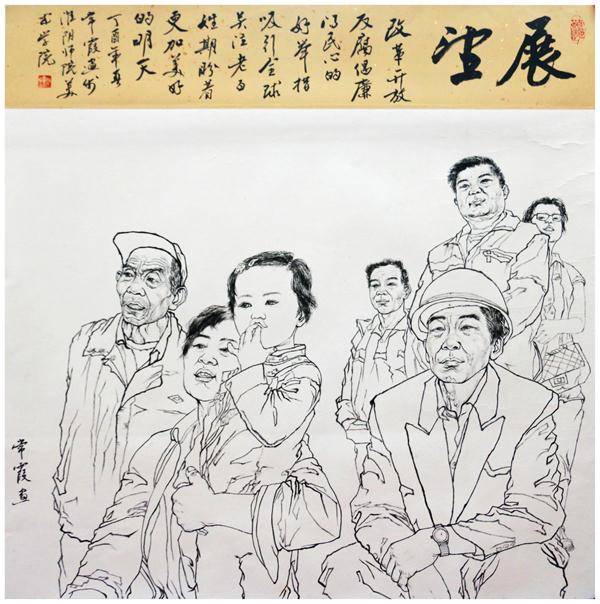 展望
改革开放
反腐倡廉
得民心的
好举措
吸引全球
关注老百
姓期盼着
更加美好
的明天
丁酉年夏
常霞画于
淮阴师院美
术学院
常霞画